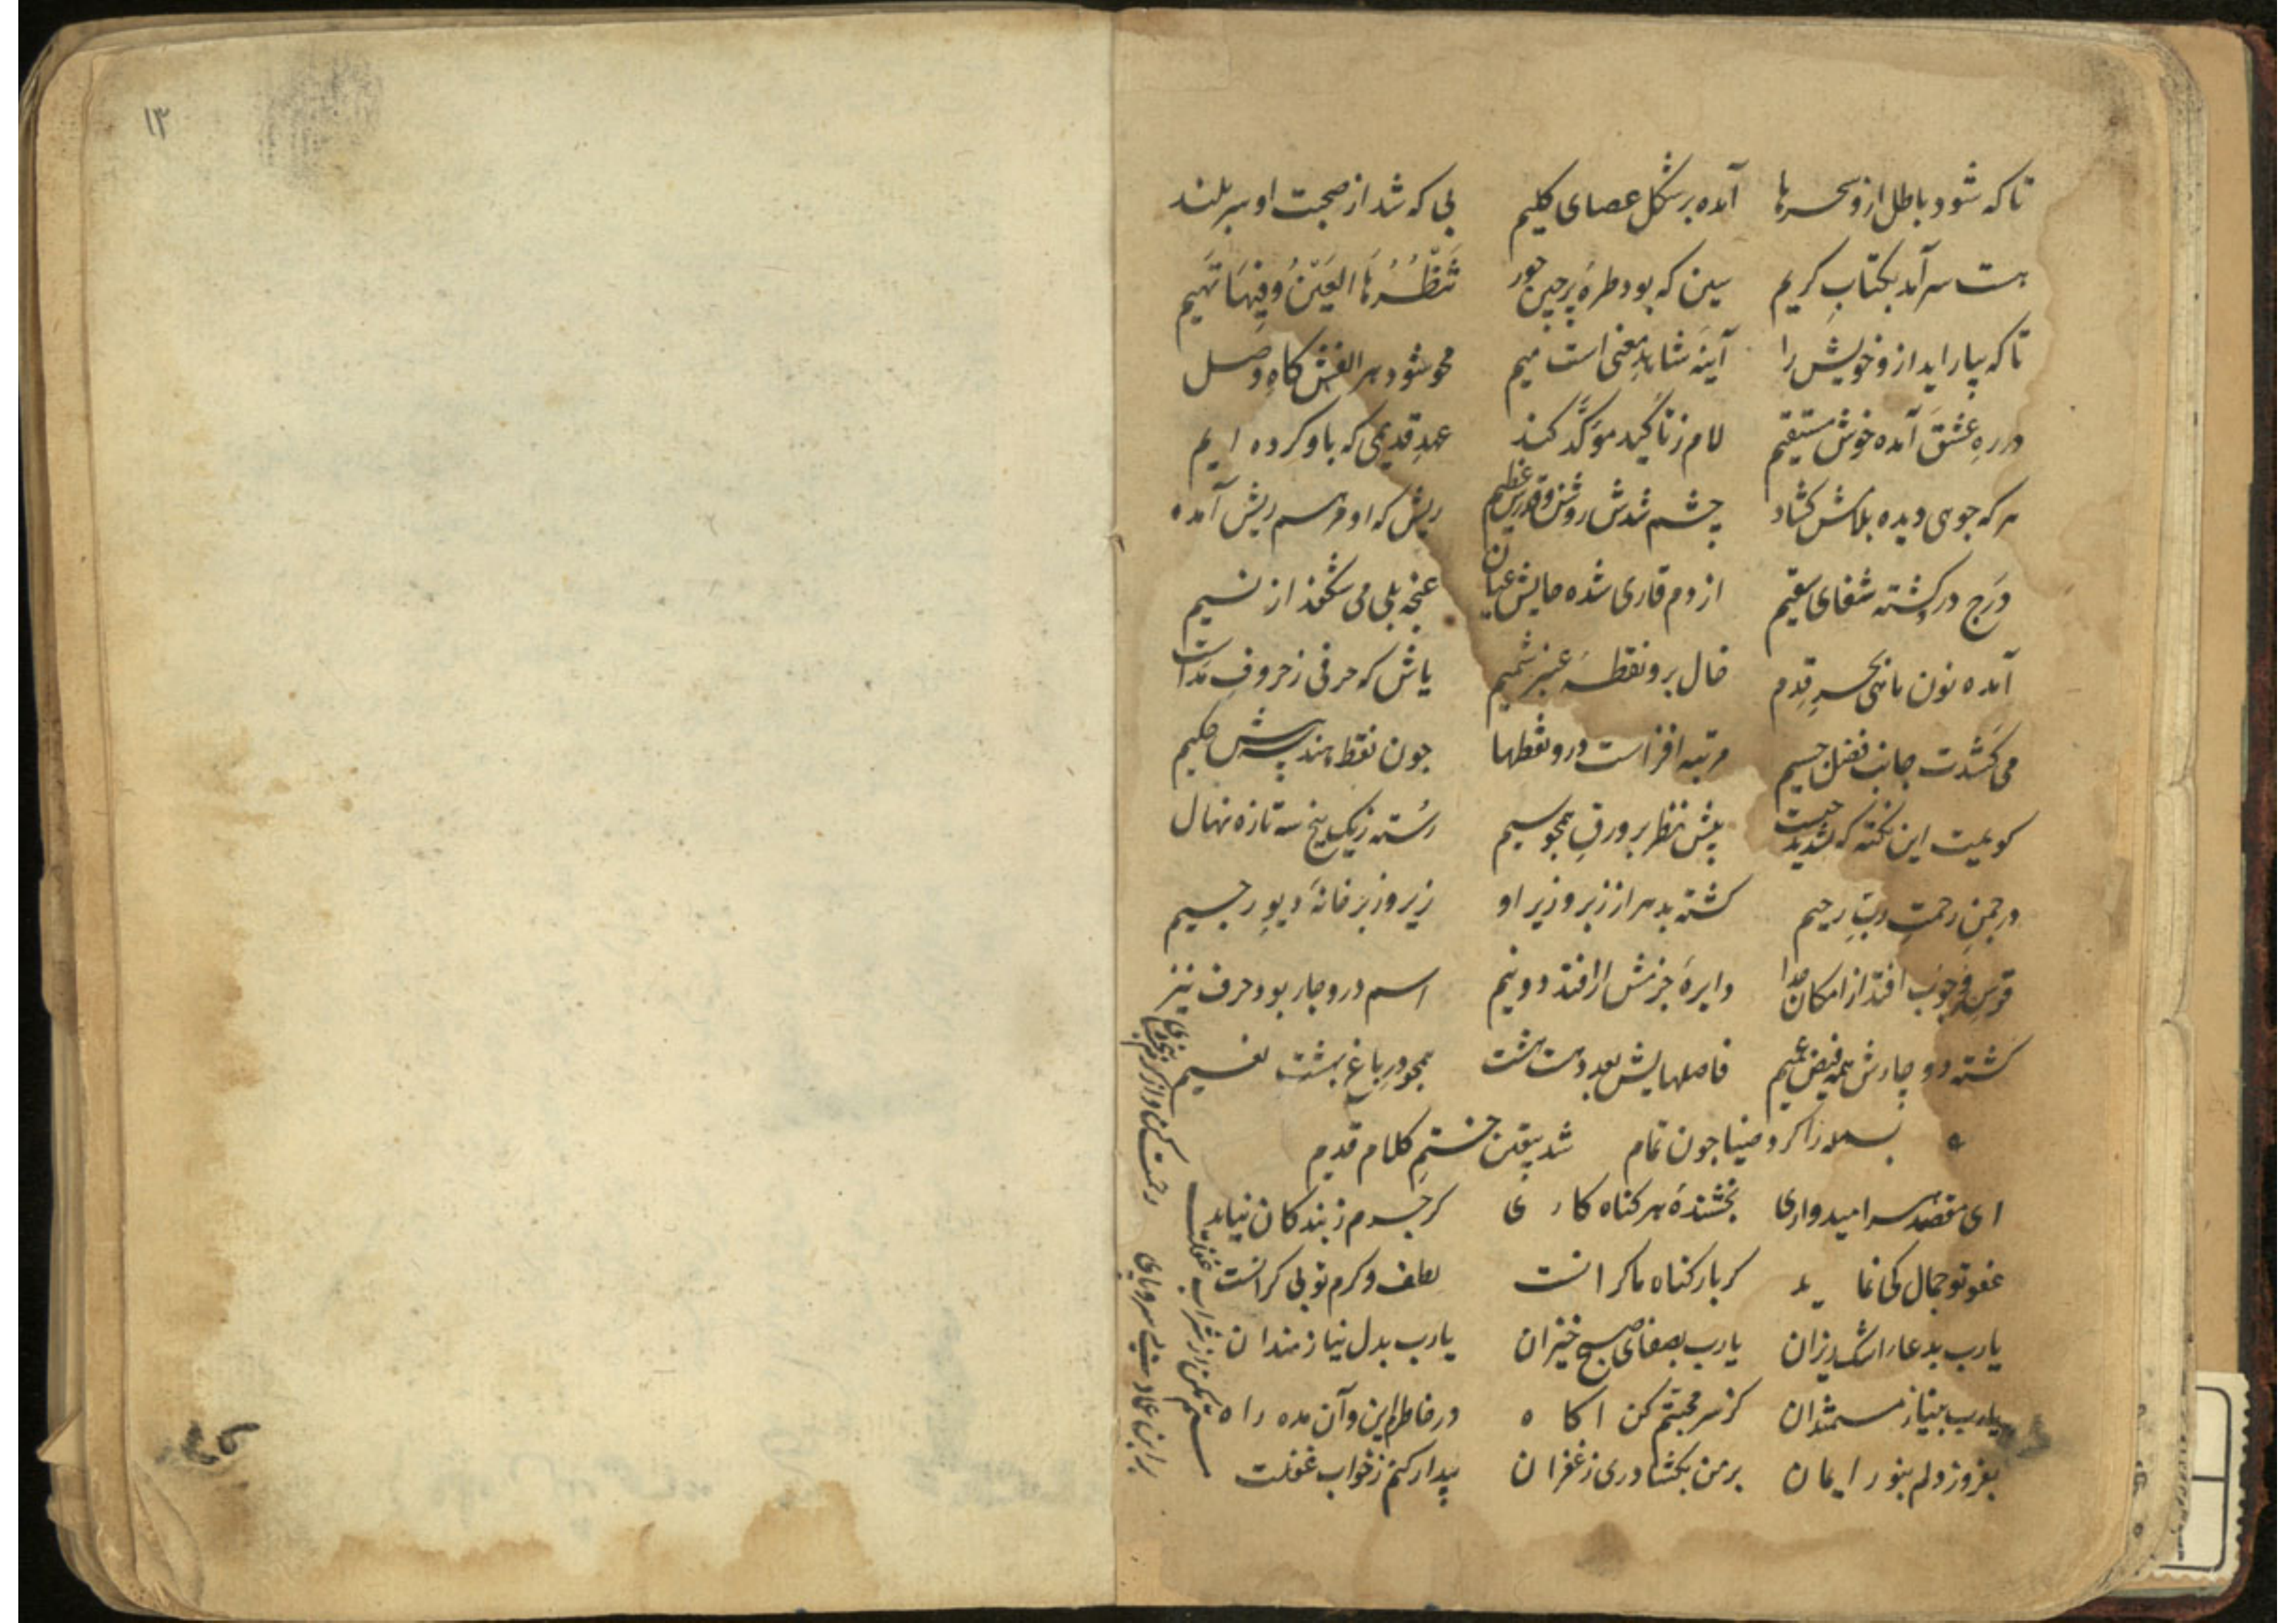 تا که شود باطل ازو سحرها آمده بر شکل عصای کلیم بی که شد از صحبت او سربلند
هست سرآمد بکتابِ کریم سین که بود طرهٔ پرچین حور تَنظُرُهَا العَینُ وَفِیهَا تَهِیم
تا که بیاراید ازو خویش را آینهٔ شاهدِ معنی است میم محو شود هر الفش کاهِ وصل
در رهِ عشق آمده خوش مستقیم لام ز تاکید موکَّد کند عهدِ قدیمی که باو کرده ایم
هر که جو هی دیده بلامش کشاد چشم شدش روشن و قدرش عظیم ریش که او مرهم ریش آمده
دَرَج درکشته شفای سقیم از دم قاری شده حایش عیان غنچه بلی می شکفد از نسیم
آمده نون ماهی بحرِ قِدم خال برو نقطهٔ عنبر شمیم یاش که حرفی ز حروفِ مَداست
می کَشَدت جانب فضل جسیم مرتبه افزاست درو نقطها جون نقط هندسه پیش حکیم
کویمت این نکته که تشدید جیست پیش نظر بر ورقِ همجو سیم رُسته ز یک بیخ سه تازه نهال
در جمنِ رحمتِ ربِّ رحیم کشته بدهر از زبر و زیر او زیر و زبر خانهٔ دیوِ رجیم
قوسِ وجوب افتد از امکان جدا دایرهٔ جزمش ار افتد دو نیم اسم درو جار بود حرف نیز
کشته دو چارش همه فیض عمیم فاصلهایش بعدد هست هشت همجو درِ باغِ بهشتِ نعیم
بسمله را کرد ضیا جون تمام شد بیقین ختمِ کلام قدیم
ای مقصد هر امیدواری بخشندهٔ هر کناه کاری کر جرم ز بندکان نیاید
عفو تو جمال کی نماید کر بار کناه ما کرانست لطف و کرم تو بی کرانست
یارب بدعا اشک ریزان یارب بصفای صبح خیزان یارب بدل نیازمندان
یارب بنیاز مستمندان کز سر محبتم کن اکاه در خاطرم این و آن مده راه
بفروز دلم بنور ایمان بر من بکشا دری ز غفران بیدار کنم ز خواب غفلت
مستم مکن از شراب غفلت
بر ابن عماد بی سروپای
رحمت کن و از کرم ببخشای
۱۳